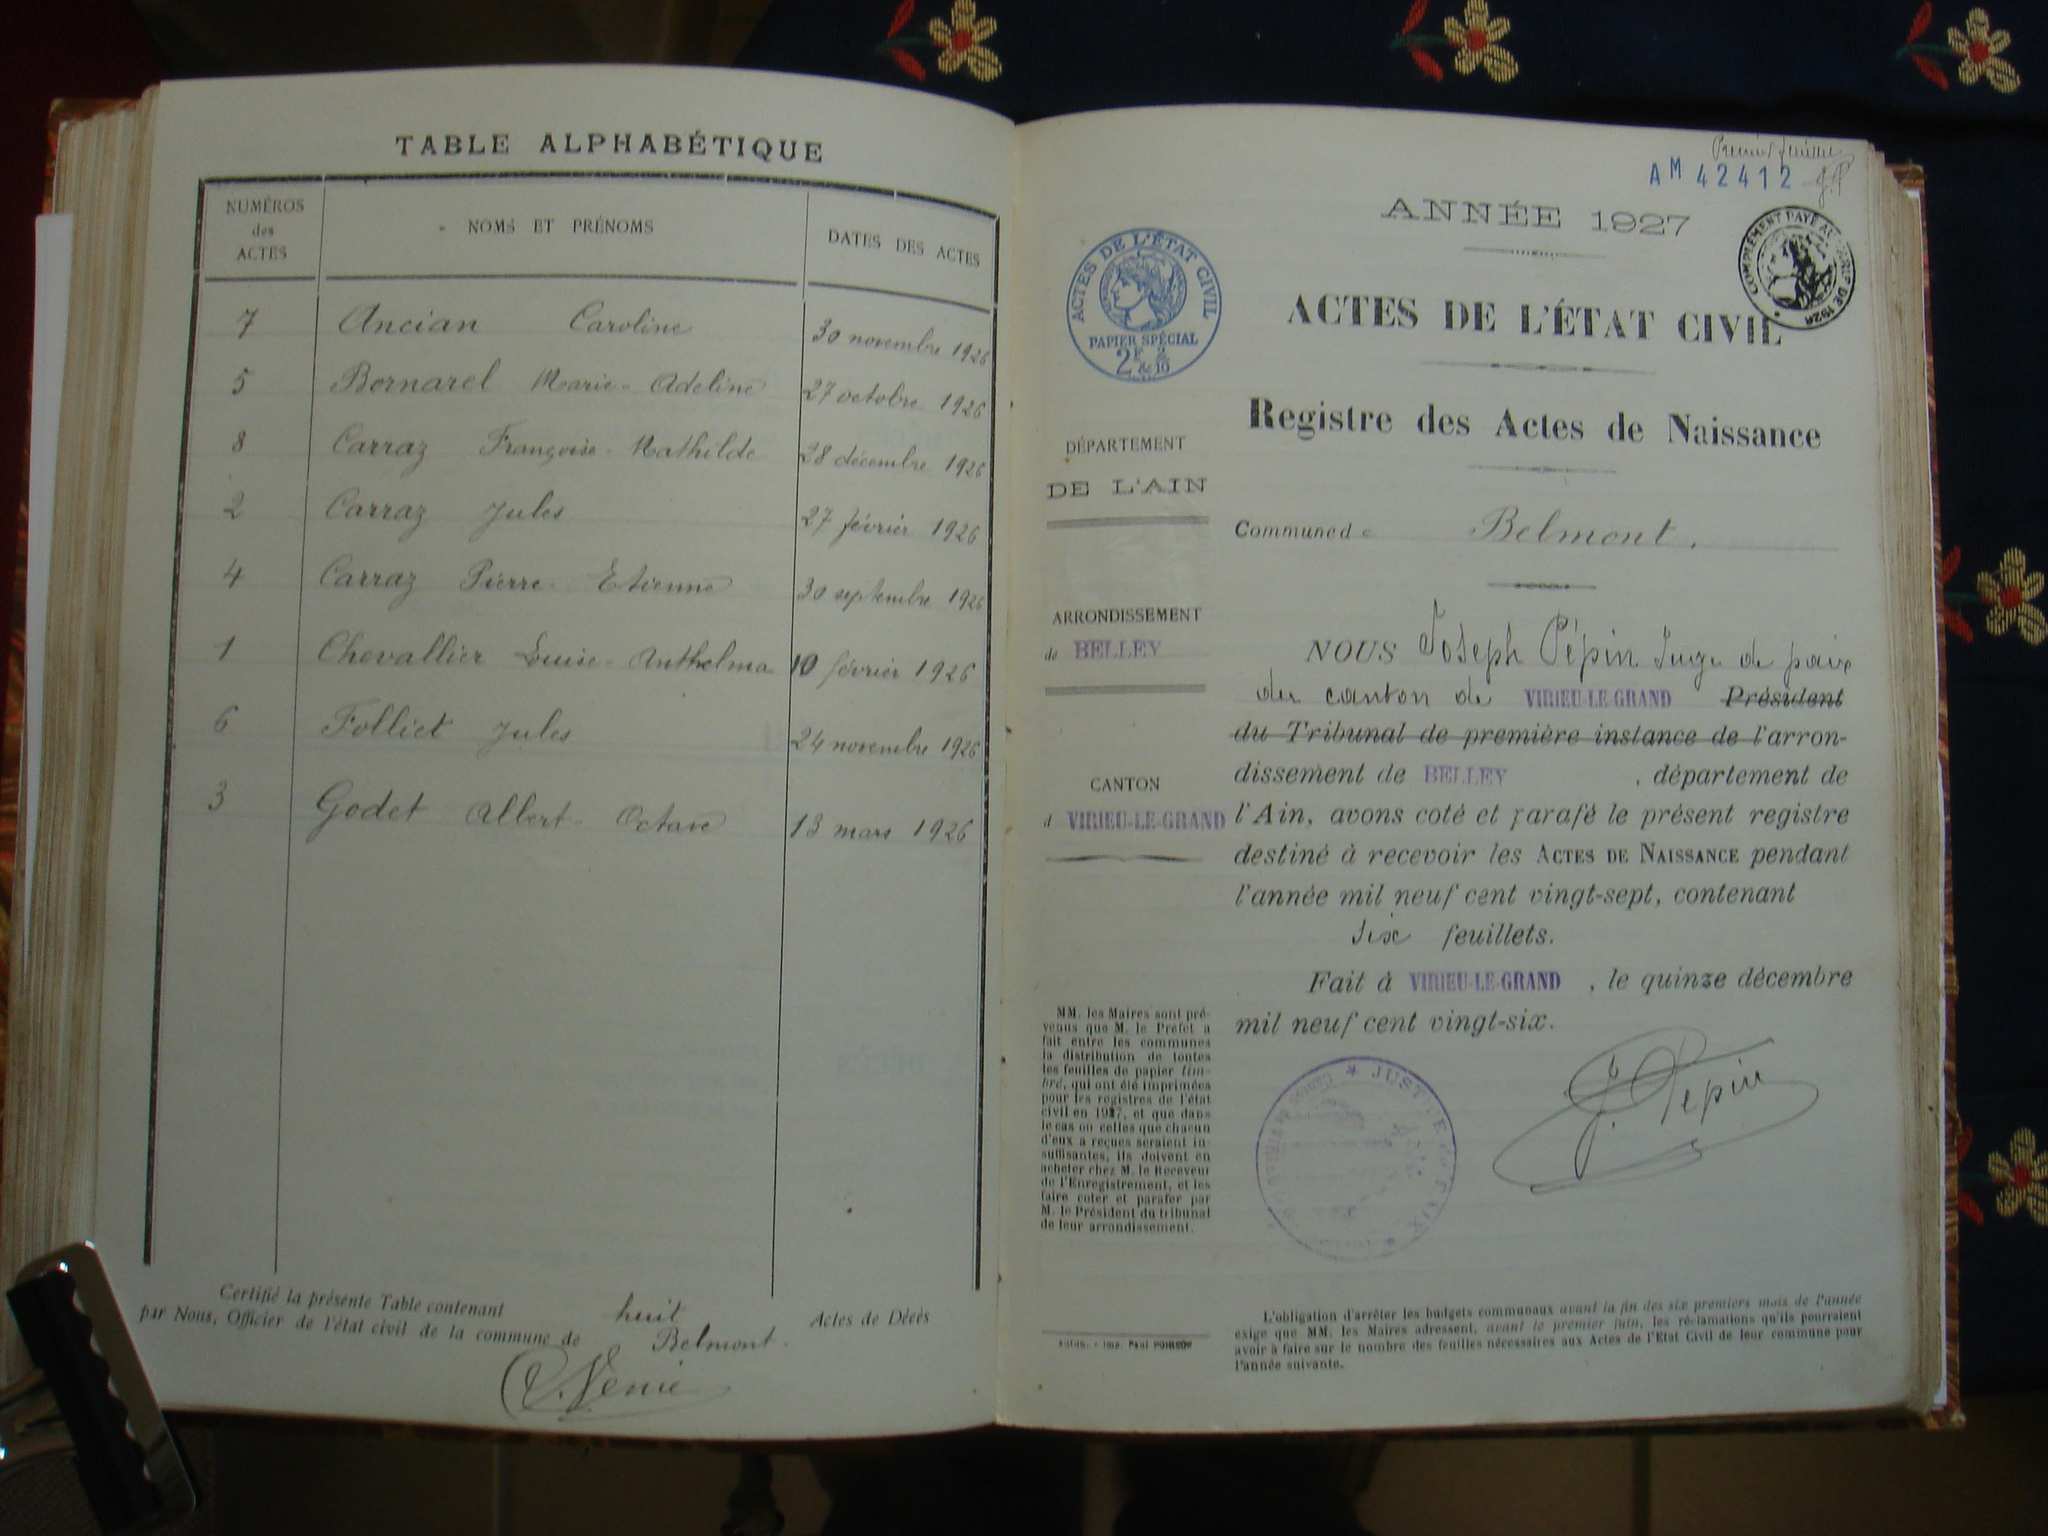 TABLE ALPHABÉTIQUE
NUMÉROS des ACTES
NOMS ET PRÉNOMS
DATES DES ACTES
7 Ancian Caroline 30 novembre 1926
5 Bornarel Marie-Adeline 27 octobre 1926
8 Carraz Françoise-Mathilde 28 décembre 1926
2 Carraz Jules 27 février 1926
4 Carraz Pierre-Etienne 30 septembre 1926
1 Chevallier Louise-Anthelma 10 février 1926
6 Folliet Jules 24 novembre 1926
3 Godet Albert-Octave 13 mars 1926
Certifié la présente Table contenant huit Actes de Décès
par Nous, Officier de l'état civil de la commune de Belmont.
AM 42412
ANNÉE 1927
ACTES DE L'ÉTAT CIVIL
PAPIER SPÉCIAL
2F & 2/10
COMPLÉMENT PAYÉ
DE 1926
ACTES DE L'ÉTAT CIVIL
Registre des Actes de Naissance
DÉPARTEMENT
DE L'AIN
Commune de Belmont.
ARRONDISSEMENT
de BELLEY
CANTON
d VIRIEU-LE-GRAND
NOUS Joseph Pépin Juge de paix
du canton de VIRIEU-LE-GRAND Président
du Tribunal de première instance de l'arron-
dissement de BELLEY , département de
l'Ain, avons coté et parafé le présent registre
destiné à recevoir les ACTES DE NAISSANCE pendant
l'année mil neuf cent vingt-sept, contenant
six feuillets.
Fait à VIRIEU-LE-GRAND , le quinze décembre
mil neuf cent vingt-six.
J. Pepin
JUSTICE de PAIX
MM. les Maires sont pré-
venus que M. le Préfet a
fait entre les communes
la distribution de toutes
les feuilles de papier tim-
bré, qui ont été imprimées
pour les registres de l'état
civil en 1927, et que dans
le cas où celles que chacun
d'eux a reçues seraient in-
suffisantes, ils doivent en
acheter chez M. le Receveur
de l'Enregistrement, et les
faire coter et parafer par
M. le Président du tribunal
de leur arrondissement.
L'obligation d'arrêter les budgets communaux avant la fin des six premiers mois de l'année
exige que MM. les Maires adressent, avant le premier juin, les réclamations qu'ils pourraient
avoir à faire sur le nombre des feuilles nécessaires aux Actes de l'État Civil de leur commune pour
l'année suivante.